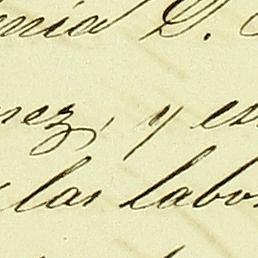 enia D.
nez, y es
las labor